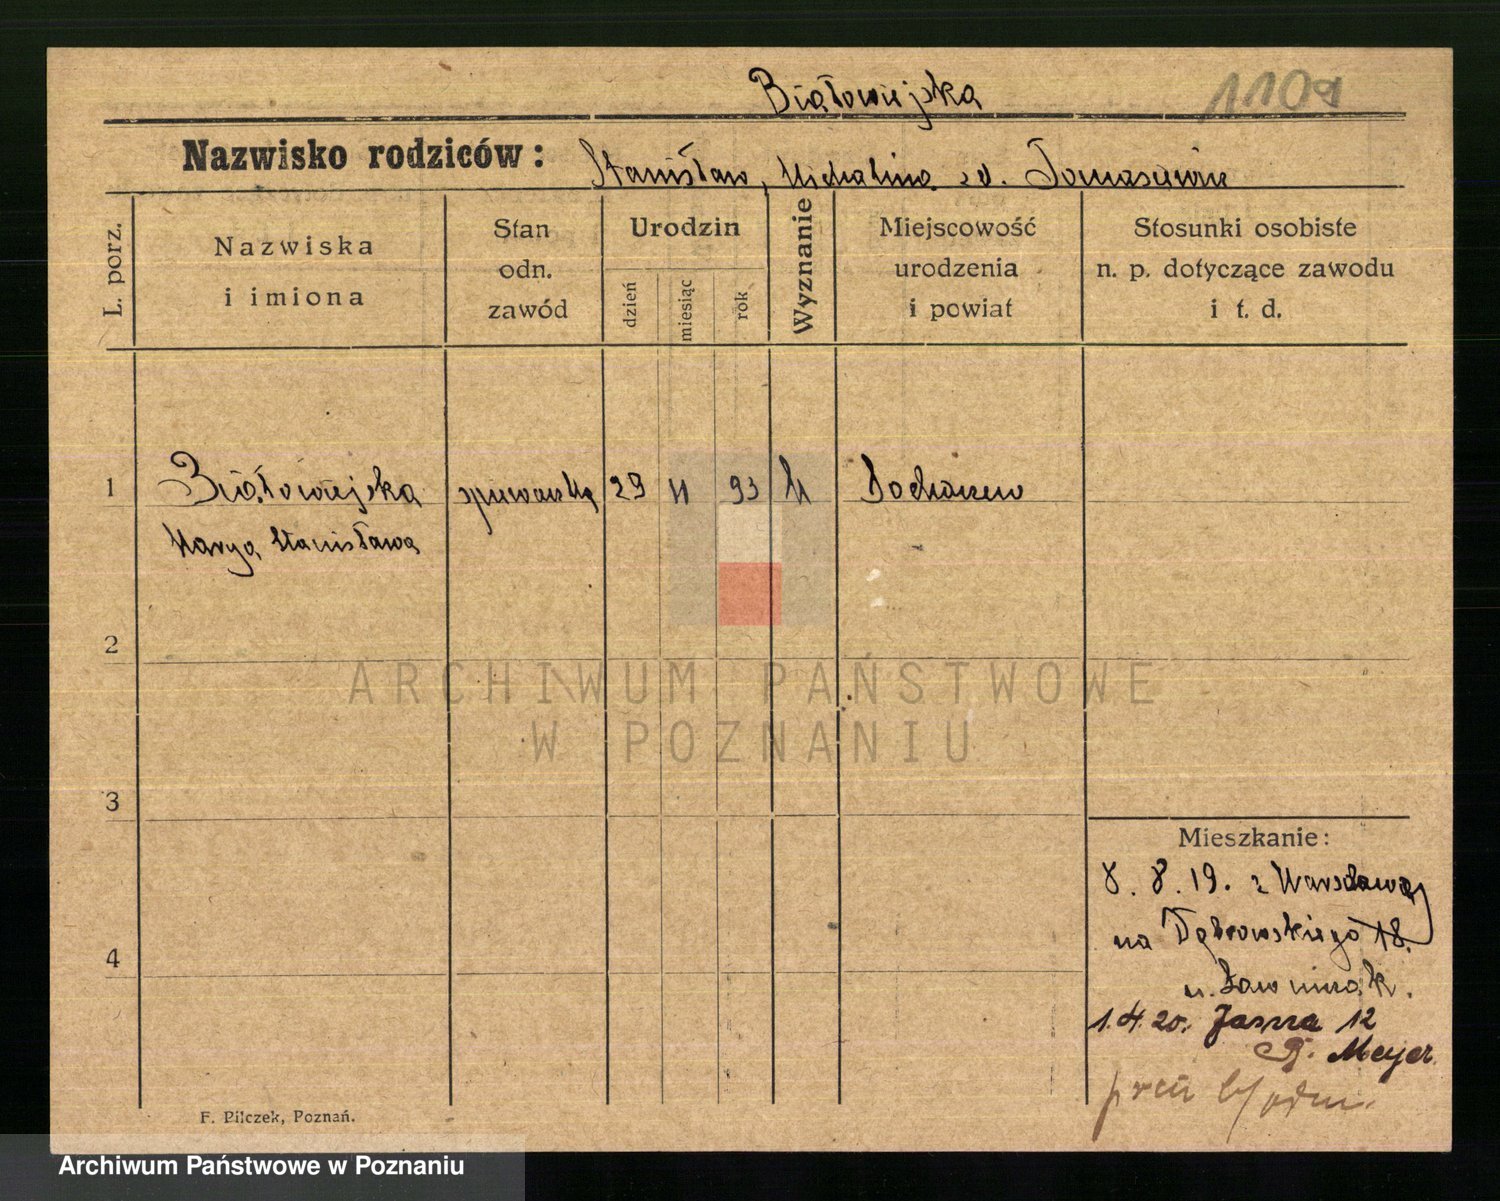 Białowiejska
110a
Nazwisko rodziców: Stanisław, Michalina zd. Tomaszewic
L. porz.
Nazwiska
i imiona
Stan
odn.
zawód
Urodzin
dzień
miesiąc
rok
Wyznanie
Miejscowość
urodzenia
i powiat
Stosunki osobiste
n. p. dotyczące zawodu
i t. d.
1
Białowiejska
Marya, Stanisława
śpiewaczka
29
11
93
k
Sochaczew
2
ARCHIWUM PAŃSTWOWE
W POZNANIU
3
4
Mieszkanie:
8. 8. 19. z Warszawy
na Dąbrowskiego 18.
u. Ławniczak.
1.4.20. Jasna 12
Meyer.
F. Pilczek, Poznań.
Archiwum Państwowe w Poznaniu